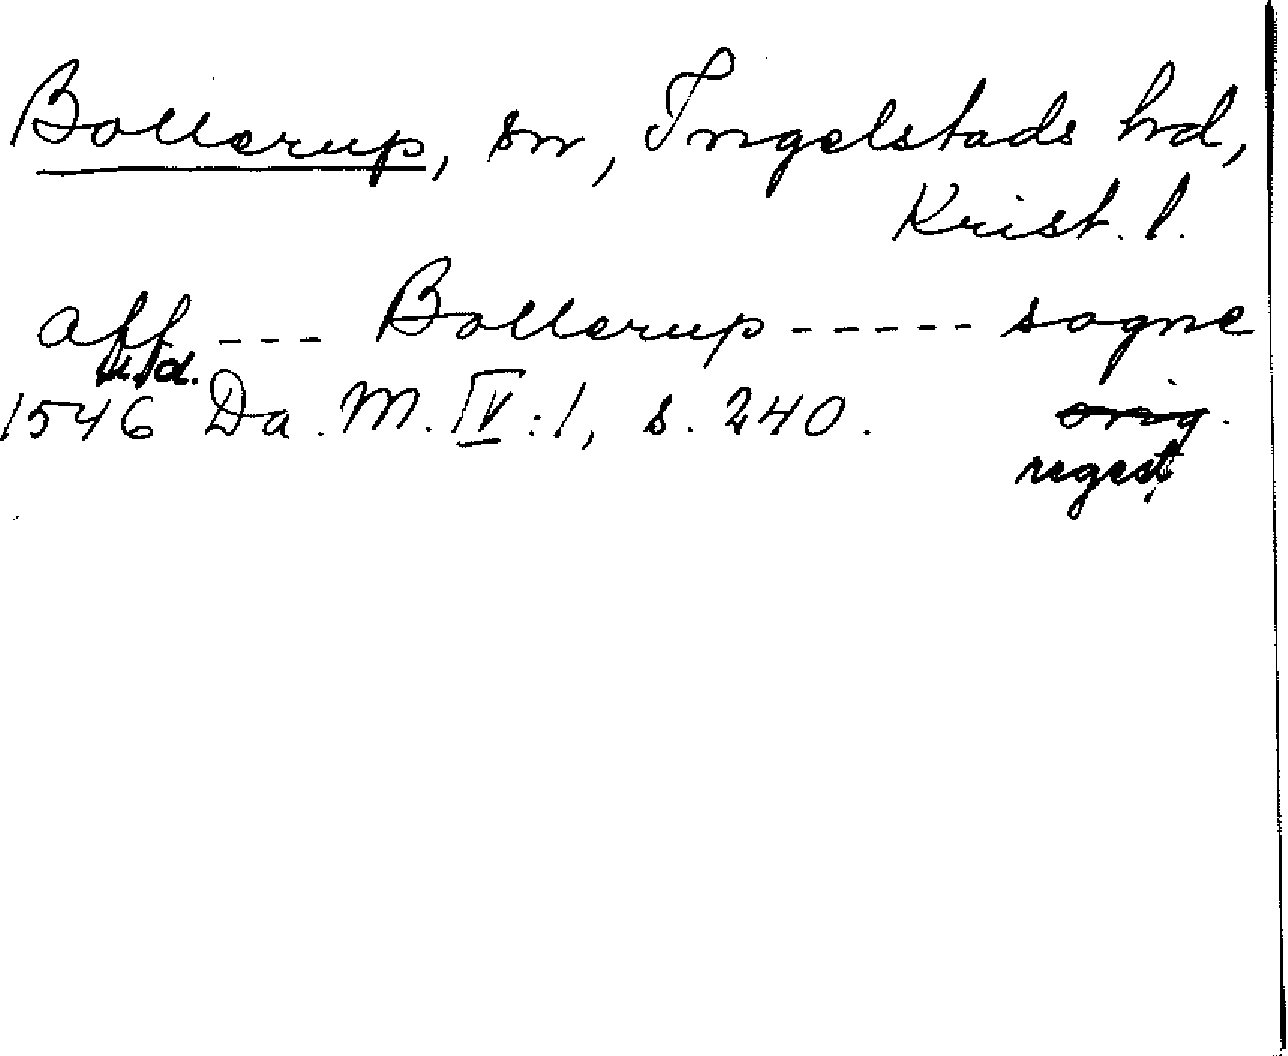 Bollerup, sn, Ingelstads hrd,
Krist. l.
aff --- Bollerup ----- sogne
u. d.
1546 Da. M. IV:1, s. 240. orig.
regest.